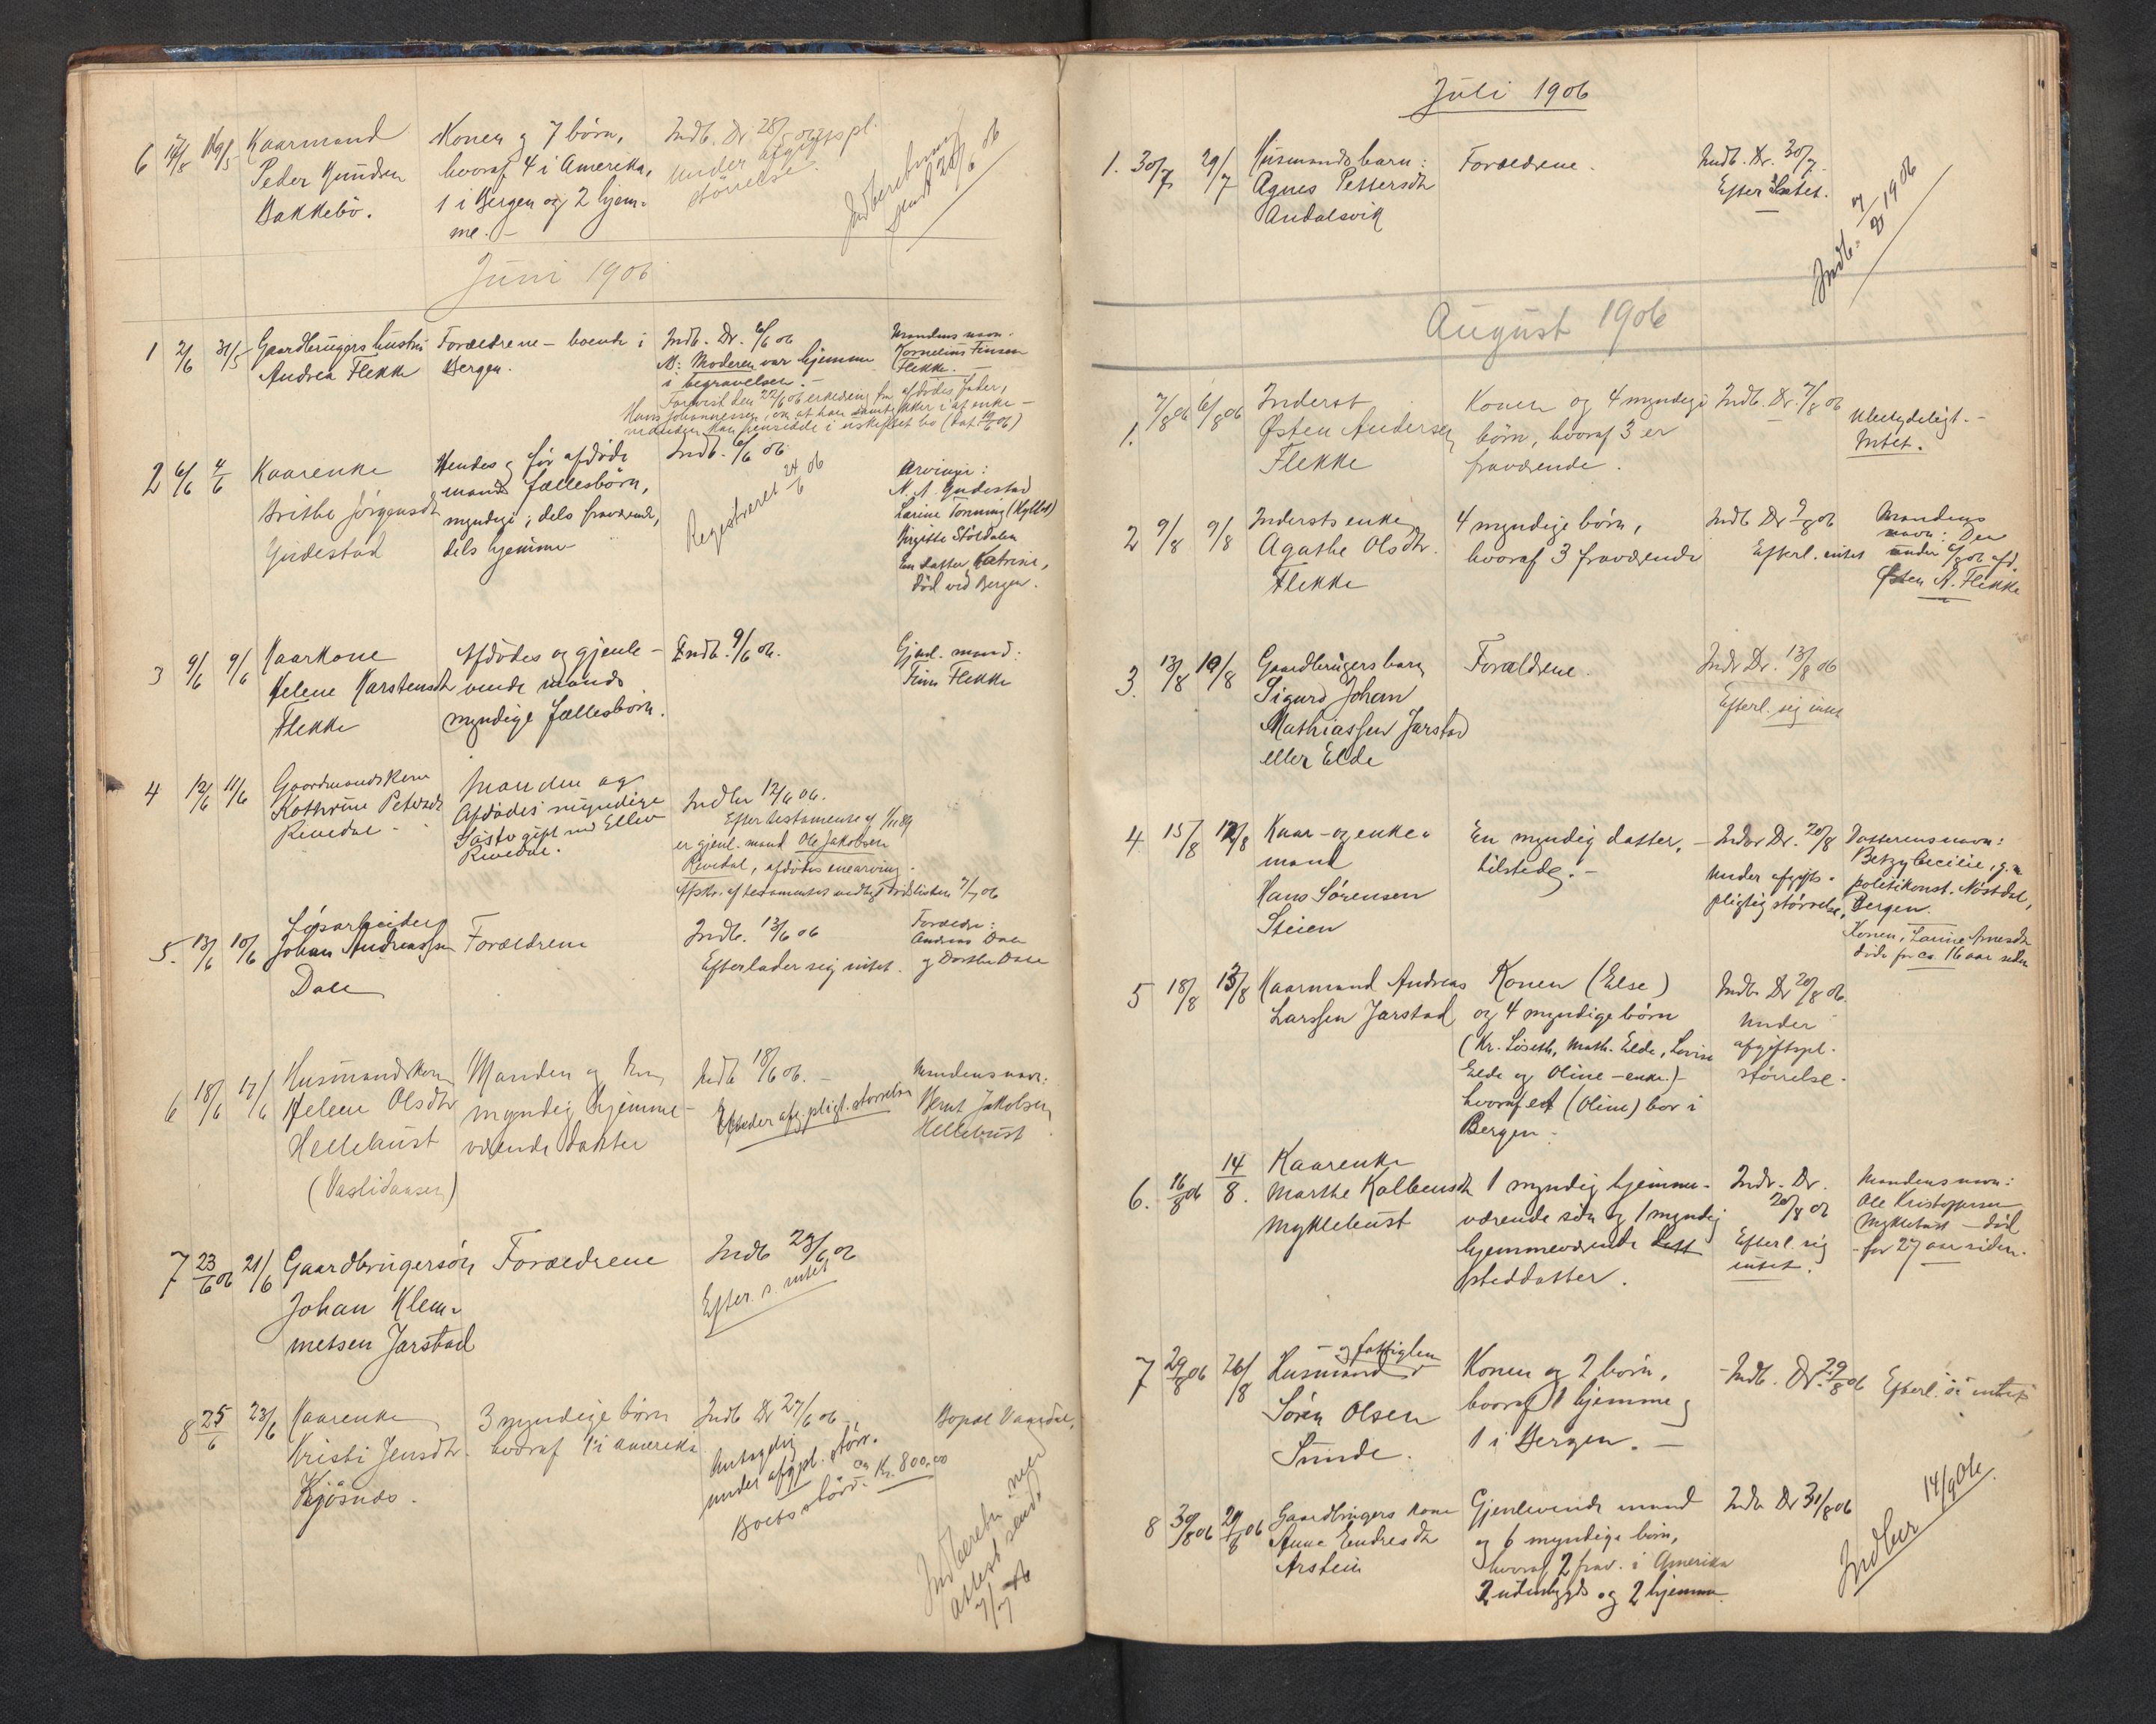 6 14/5 9/5 Kaarmand
Peder Knudsen
Bakkebö.
Konen og 7 börn,
hvoraf 4 i Amerika,
1 i Bergen og 2 hjem-
me. -
Indb. Dr. 28/5 06
under afgiftspl.
störrelse.
Indberetning
sendt 2/6 06
Juni 1906
1 2/6 31/5 Gaardbrugers hustru
Andrea Flekke
Forældrene - boende i
Bergen.
Indb. Dr. 6/6 06
M: Moderen var hjemme
i begravelsen. -
Forevist den 22/6 06 erklæring fra afdödes fader,
Hans Johannessen, om at han samtykker i at enke-
manden kan hensidde i uskiftet bo (dat. 19/6 06)
Mandens navn:
Kornelius Finsen
Flekke. -
2 6/6 4/6 Kaarenke
Brithe Jörgensdtr
Gjidestad
Hendes og för afdöde
mands fællesbörn,
myndige; dels fraværende,
dels hjemme
Indb. 6/6 06
Registreret 24/6 06
Arvinger:
N. A. Gjidestad
Larine Tonning (Hyllest)
Birgitte Stöldalen
En datter Katrine,
död ved Bergen.
3 9/6 9/6 Kaarkone
Helene Karstensdtr
Flekke
Afdödes og gjenle-
vende mands
myndige fællesbörn.
Indb. 9/6 06.
Gjenl. mand:
Finn Flekke
4 12/6 11/6 Gaardmandskone
Kathrine Petersdtr
Rivedal -
Manden og
Afdödes myndige
Söster gift med Ellev
Rivedal.
Indber 12/6 06.
Efter testamente af 1/11 89
er gjenl. mand Ole Jakobsen
Rivedal, afdödes enearving.
Afskr. af testamentet vedlagt dödslisten 7/7 06
5. 13/6 10/6 Lösarbeider
Johan Andreassen
Dale
Forældrene
Indb. 13/6 06
Efterlader sig intet.
Forældre:
Andreas Dale
og Dorthe Dale
6 18/6 17/6 Husmandskone
Helene Olsdtr
Hellebust
(Vaslidansen)
Manden og en
myndig hjemme-
værende datter
Indb 18/6 06. -
Under afg.pligt. störrelse
Mandens navn:
Bernt Jakobsen
Hellebust
7 23/6 06 21/6 Gaardbrugersön
Johan Klem-
metsen Jarstad
Forældrene
Indb 23/6 06
Efter. s. intet
8 25/6 23/6 Kaarenke
Kristi Jensdtr.
Kjösnes.
3 myndige börn
hvoraf 1 i amerika
Indb Dr 27/6 06
Antagelig
under afgpl. störr.
Boets störr. ca Kr. 800.00
Bopæl Vaardal.
Indberetn. med
attest sendt
7/7 06
Juli 1906
1. 30/7 29/7 Husmandsbarn:
Agnes Pettersdtr
Andalsvik
Forældrene.
Indb. Dr. 30/7.
Efter. intet.
Indb. 7/8 1906
August 1906
1. 7/8 06 6/8 06 Inderst
Østen Andersen
Flekke
Konen og 4 myndige
börn, hvoraf 3 er
fraværende.
Indb. Dr. 7/8 06
Ubetydeligt. -
Intet.
2 9/8 9/8 Inderstenke
Agathe Olsdtr.
Flekke
4 myndige börn,
hvoraf 3 fraværende
Indb Dr 9/8 06
Efterl. intet
Mandens
navn: Den
under 6/8 06 afd.
Østen A. Flekke
3. 13/8 10/8 Gaardbrugersbarn
Sigurd Johan
Mathiassen Jarstad
eller Elde
Forældrene.
Indb Dr. 13/8 06
Efterl. sig intet
4 15/8 12/8 Kaar- og enke-
mand
Hans Sörensen
Steien
En myndig datter,
tilstede. -
Indb Dr. 20/8
under afgifts-
pligtig störrelse.
Datterens navn:
Betzy Cecilie, g. m
politikonst. Nöstdal,
Bergen.
Konen, Larine Arnesdtr
döde for ca. 16 aar siden
5 18/8 13/8 Kaarmand Andreas
Larssen Jarstad
Konen (Else)
og 4 myndige börn
(Kr. Liseth, Math. Elde, Lovise
Elde og Oline - enke.) -
hvoraf et (Oline) bor i
Bergen -
Indb Dr 20/8 06.
under
afgiftspl.
störrelse.
6. 16/8 06 14/8. Kaarenke
Marthe Kolbensdtr
Myklebust
1 myndig hjemme-
værende sön og 1 myndig
hjemmeværende datt
steddatter.
Indb. Dr.
20/8 06
Efterl. sig
intet.
Mandens navn:
Ole Kristoffersen
Myklebust - död
- for 27 aar siden.
7 29/8 06 26/8 - og fattiglem
Husmand
Sören Olsen
Sunde.
Konen og 2 börn,
hvoraf 1 hjemme og
1 i Bergen. -
Indb. Dr. 29/8 06 Efterl. s. intet
8 30/8 06 29/8 06 Gaardbrugers kone
Anne Endresdtr
Arstein
Gjenlevende mand
og 6 myndige börn,
hvoraf 2 frav. i Amerika
2 udenbygds og 2 hjemme
Indb Dr 31/8 06
Indber 14/9 06.